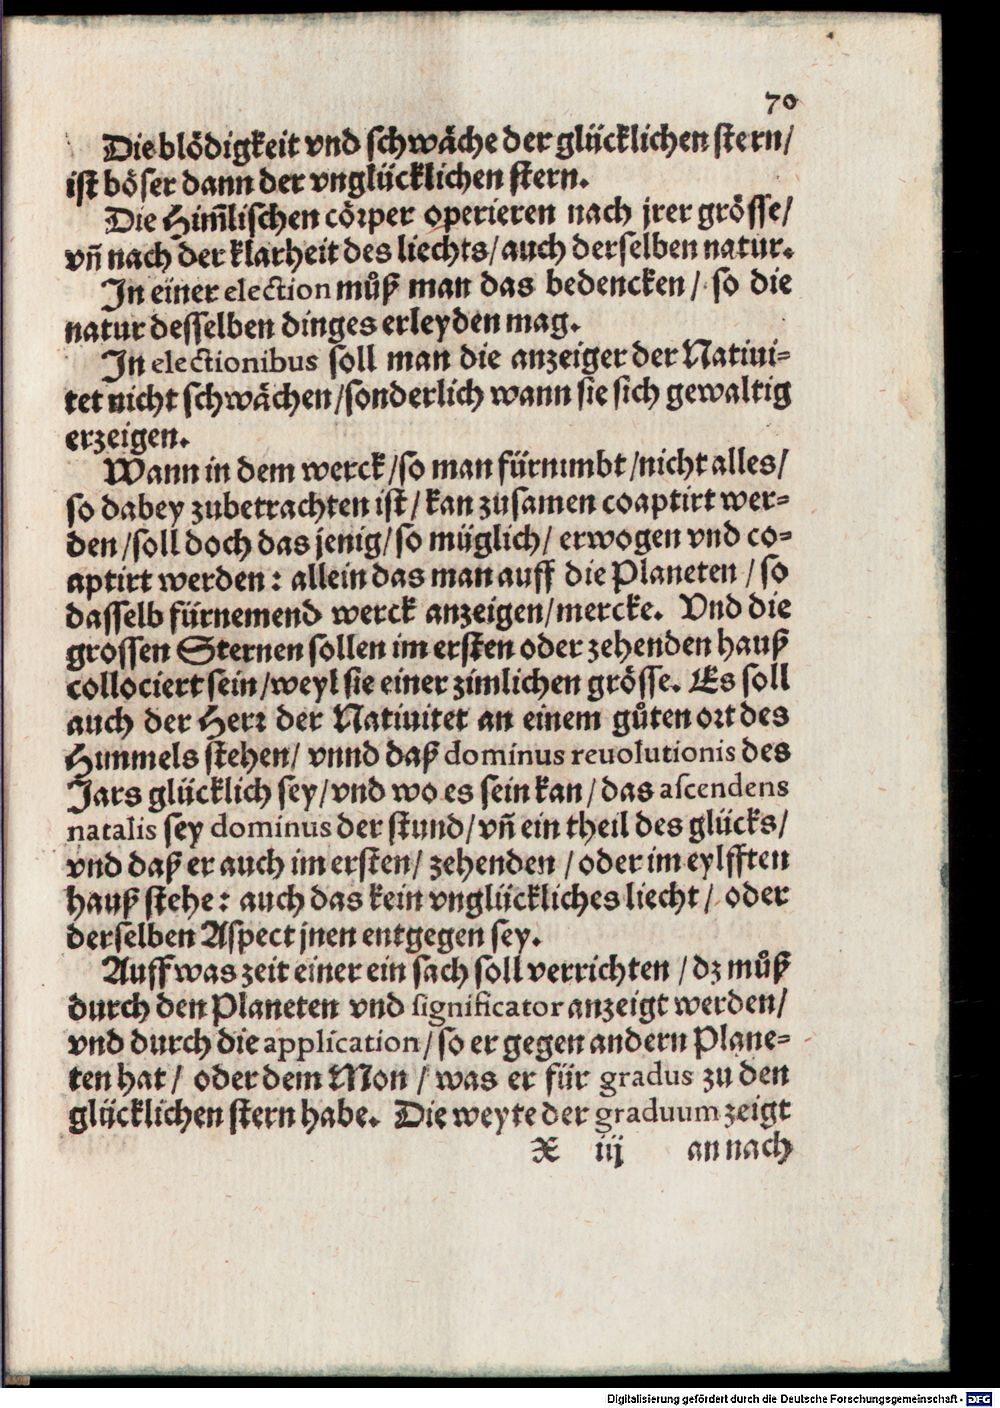 70
Die blödigkeit vnd schwäche der glücklichen stern/
ist böser dann der vnglücklichen stern.
Die Him̃lischen cörper operieren nach jrer grösse/
vñ nach der klarheit des liechts/ auch derselben natur.
In einer election můß man das bedencken / so die
natur desselben dinges erleyden mag.
In electionibus soll man die anzeiger der Natiui=
tet nicht schwächen/sonderlich wann sie sich gewaltig
erzeigen.
Wann in dem werck/so man fürnimbt/nicht alles/
so dabey zubetrachten ist/ kan zusamen coaptirt wer=
den/soll doch das jenig/so müglich/ erwogen vnd co=
aptirt werden: allein das man auff die Planeten /so
dasselb fürnemend werck anzeigen/mercke. Vnd die
grossen Sternen sollen im ersten oder zehenden hauß
collociert sein/weyl sie einer zimlichen grösse. Es soll
auch der Herr der Natiuitet an einem gůten ort des
Himmels stehen/ vnnd daß dominus reuolutionis des
Jars glücklich sey/vnd wo es sein kan/das ascendens
natalis sey dominus der stund/vñ ein theil des glücks/
vnd daß er auch im ersten/ zehenden /oder im eylfften
hauß stehe: auch das kein vnglückliches liecht/ oder
derselben Aspect jnen entgegen sey.
Auff was zeit einer ein sach soll verrichten /dz můß
durch den Planeten vnd significator anzeigt werden/
vnd durch die application/so er gegen andern Plane=
ten hat/ oder dem Mon / was er für gradus zu den
glücklichen stern habe. Die weyte der graduum zeigt
X iij an nach
Digitalisierung gefördert durch die Deutsche Forschungsgemeinschaft - DFG